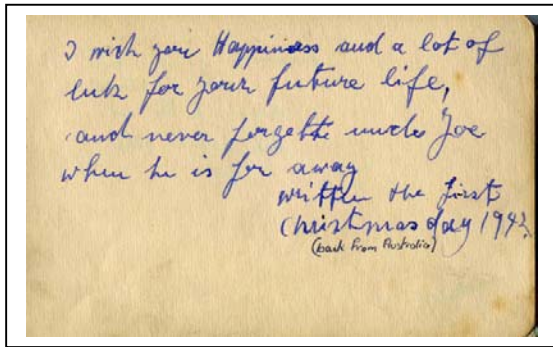 I wish you Happiness and a lot of
luk for your future life,
and never forgette uncle Joe
when he is for away
written the first
Christmas day 1942.
(back from Australia)